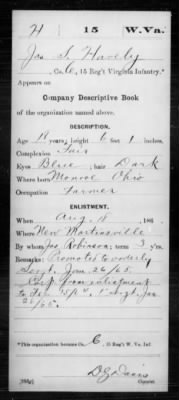 H 15 W.Va.
Jas S. Havely
Co. C, 15 Reg't Virginia Infantry.*
Appears on
Company Descriptive Book
of the organization named above.
DESCRIPTION.
Age 18 years; height 6 feet 1 inches.
Complexion Fair
Eyes Blue; hair Dark
Where born Monroe Ohio
Occupation Farmer
ENLISTMENT.
When Aug. 18, 186
Where New Martinsville
By whom Jas Robinson; term 3 y'rs.
Remarks: Promoted to orderly
Sergt. Jan 26/65.
Corp from enlistment
to Jan
26/65.
*This organization became Co. C, 15 Reg't W. Va. Inf.
Copyist.